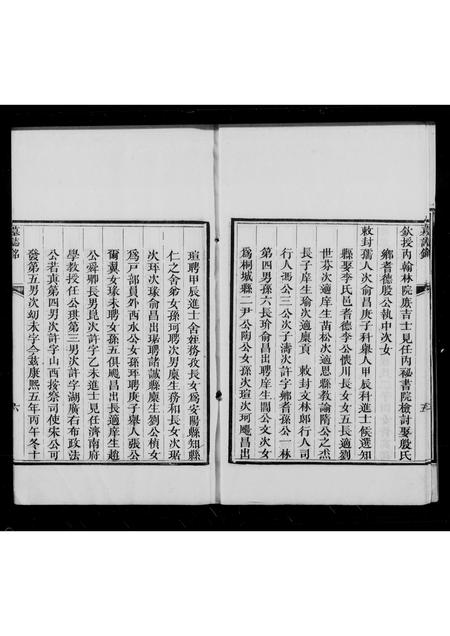 欽授內翰林院庶吉士見任內祕書院檢討娶殷氏
鄉耆德殷公執中次女
敕封孺人次俞昌庚子科舉人甲辰科進士候選知
縣娶李氏邑耆德李公懷川長女女五長適劉
世芬次適庠生苗松次適恩縣教諭隋公之烝
長子庠生瑜次適廩貢 敕封文林郎行人司
行人馮公三公次子濤次許字鄉耆孫公一林
第四男孫六長玠俞昌出聘庠生閻公文次女
爲桐城縣二尹公陶公女孫次瑄次珂颺昌出
瑄聘甲辰進士舍姪務孜長女爲安陽縣知縣
仁之舍弟女孫珂聘次男廩生務和長女次琚
次环次璩俞昌出琚聘諸誠縣廩生劉公楨女
爲戶部員外西水公女孫环聘庚子舉人張公
爾翼女璩未聘女孫五俱颺昌出長適庠生趙
公舜卿長男崑次許字乙未進士見任濟南府
學教授任公琪第三男次許字湖廣右布政法
公若真第四男次許字山西按察司使宋公可
發第五男次幼未字今茲康熙五年丙午冬十
墓誌銘
六
五